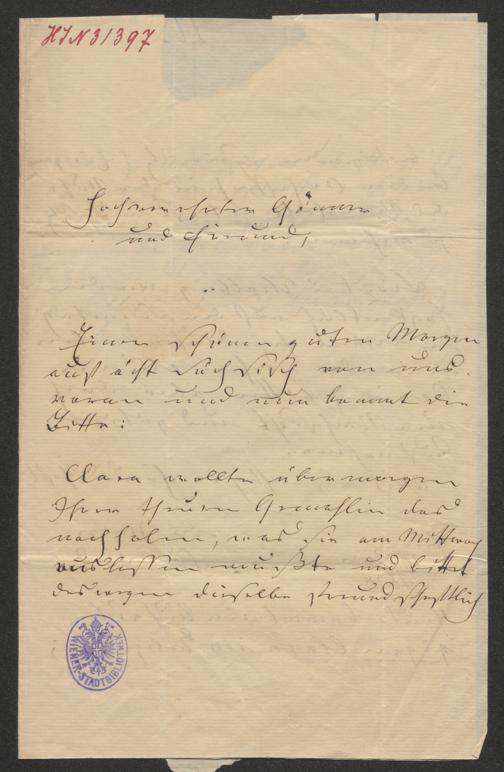 HIN 31397
Hochverehrter Gönner
und Freund,
Einen schönen guten Morgen
auf ächt Sächsisch von uns
voran und nun kommt die
Bitte:
Clara wollte übermorgen
Ihrer theuren Gemahlin das
nachholen, was sie am Mittwoch
auslassen mußte und bittet
deswegen dieselbe freundschaftlich
WIENER STADTBIBLIOTHEK